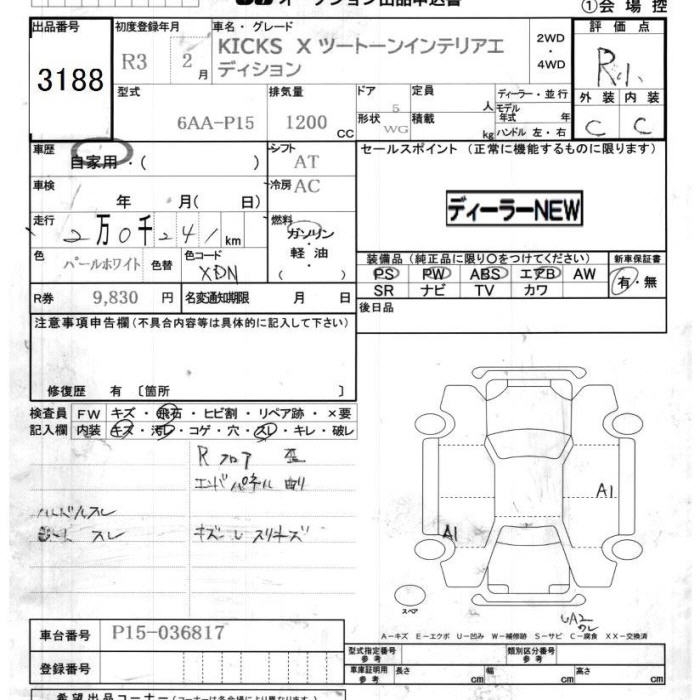 オークション出品申込書
①会場控
出品番号 3188
初度登録年月 R3 2月
車名・グレード KICKS X ツートーンインテリアエディション
2WD・4WD
評価点 R.1
外装 内装
C C
型式 6AA-P15
排気量 1200 CC
ドア 5
定員 人
形状 WG
積載 kg
ディーラー・並行
モデル年式 年
ハンドル 左・右
車歴 自家用・( )
シフト AT
車検 年 月( 日)
冷房 AC
走行 2万0千241km
燃料 ガソリン・軽油・( )
色 パールホワイト 色替
色コード XDN
R券 9,830 円
名変通知期限 月 日
セールスポイント (正常に機能するものに限ります)
ディーラーNEW
装備品(純正品に限り○をつけてください)
PS PW ABS エアB AW
SR ナビ TV カワ
新車保証書 有・無
後日品
注意事項申告欄(不具合内容等は具体的に記入して下さい)
修復歴 有 〔箇所 〕
検査員 FW キズ・飛石・ヒビ割・リペア跡・×要
記入欄 内装 キズ・汚レ・コゲ・穴・スレ・キレ・破レ
Rフロア 歪
エンドパネル 曲り
ハンドルスレ
シート スレ
キズ・スリキズ
A1
A1
スペア
UA2
A－キズ E－エクボ U－凹み W－補修跡 S－サビ C－腐食 XX－交換済
車台番号 P15-036817
登録番号
型式指定番号 参考
類別区分番号 参考
車庫証明用 参考 長さ cm 幅 cm 高さ cm
希望出品コーナー